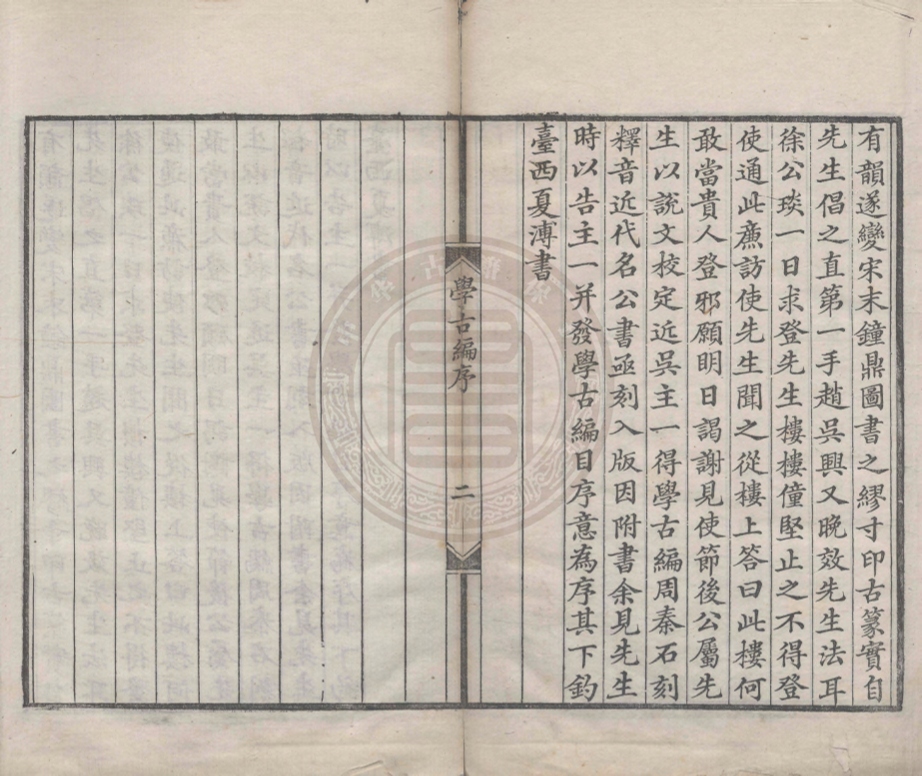 有韻遂變宋末鐘鼎圖書之繆寸印古篆實自
先生倡之直第一手趙吳興又晚效先生法耳
徐公琰一日求登先生樓樓僮堅止之不得登
使通此廉訪使先生聞之從樓上答曰此樓何
敢當貴人登邪願明日謁謝見使節後公屬先
生以說文校定近吳主一得學古編周秦石刻
釋音近代名公書亟刻入版因附書余見先生
時以告主一并發學古編目序意為序其下釣
臺西夏溥書
學古編序
二